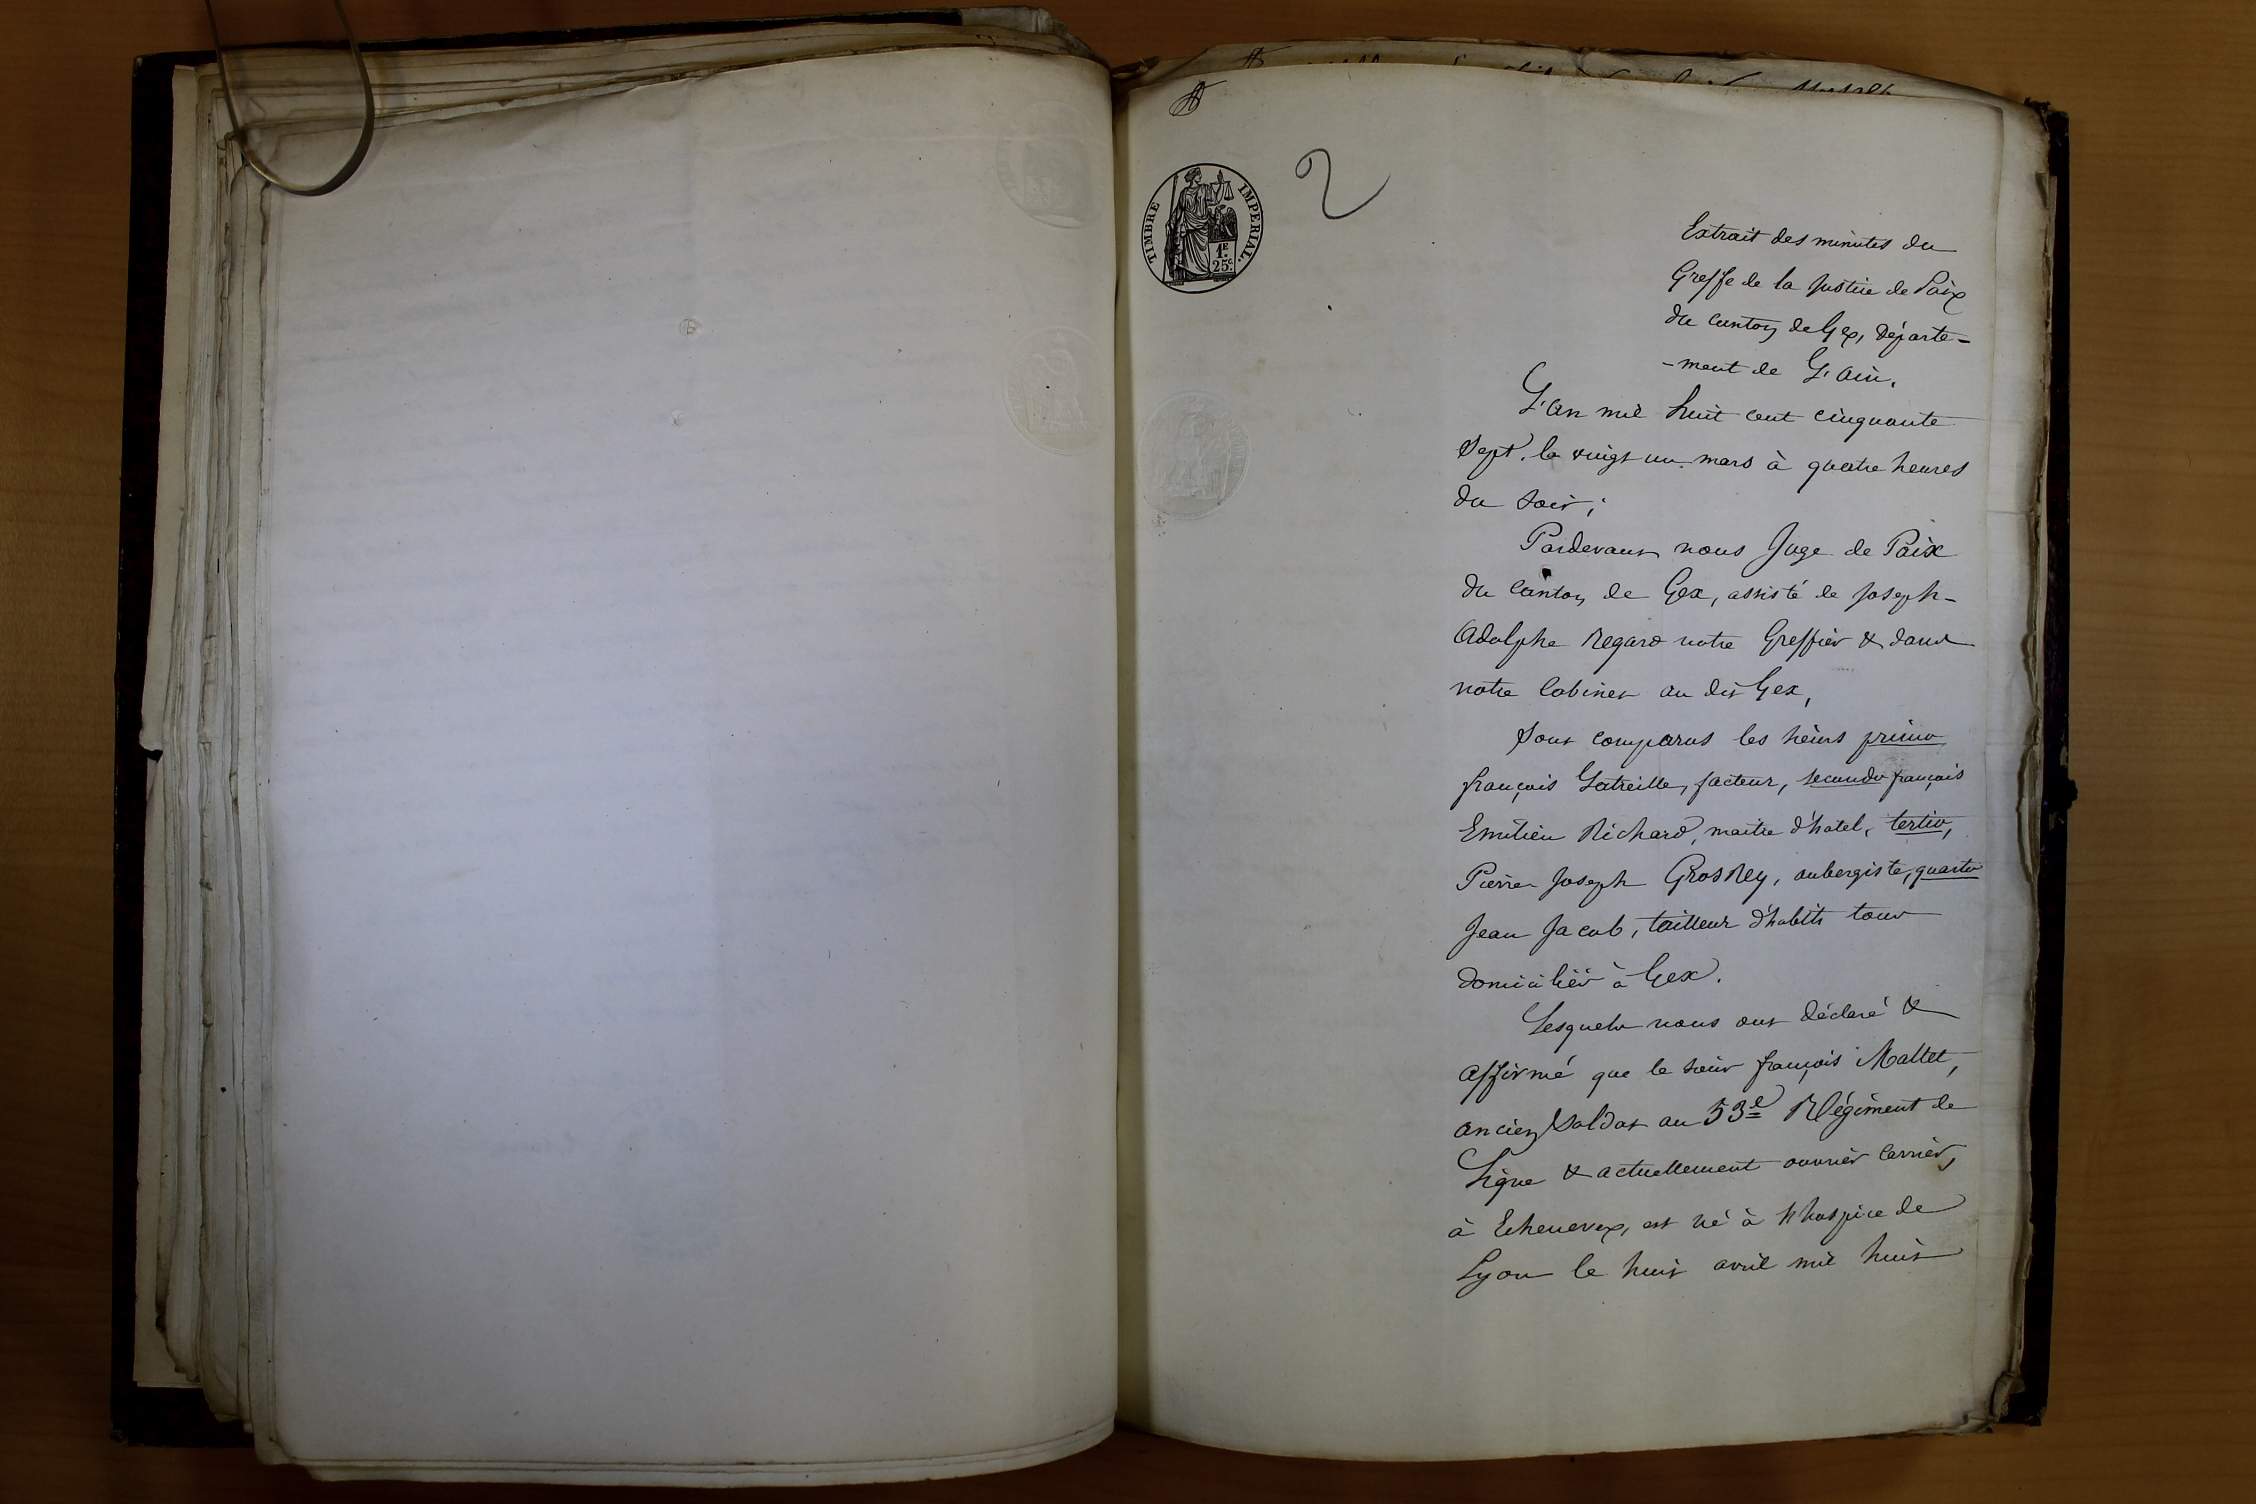 2
TIMBRE IMPERIAL.
1F.
25c.
Extrait des minutes du
Greffe de la Justice de Paix
du canton de Gex, départe-
-ment de L'ain.
L'an mil huit cent cinquante
Sept. le vingt un mars à quatre heures
du soir;
Pardevant nous Juge de Paix
du canton de Gex, assisté de Joseph-
Adolphe Regard notre Greffier & dans
notre Cabinet au dit Gex,
Sont comparus les sieurs primo
françois Latreille, facteur, secundo françois
Emilien Richard, maitre d'hotel, tertio,
Pierre Joseph GrosRey, aubergiste, quarto
Jean Jacob, tailleur d'habits tous
domiciliés à Gex.
Lesquels nous ont déclaré &
affirmé que le sieur françois Mallet,
ancien Soldat au 53e Régiment de
Ligne & actuellement ouvrier carrier,
à Echenevex, est né à l'hospice de
Lyon le huit avril mil huit